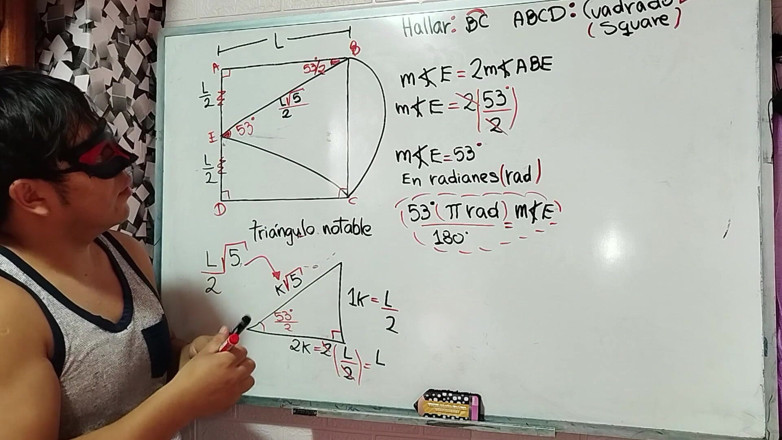 Hallar: BC ABCD: Cuadrado
(Square)
L
A
B
53°/2
L/2
L√5/2
E
53°
L/2
D
C
m∡E = 2m∡ABE
m∡E = 2(53°/2)
m∡E = 53°
En radianes (rad)
53°(π rad)/180° = m∡E
triángulo notable
L/2 √5
K√5
53°/2
1K = L/2
2K = 2(L/2) = L